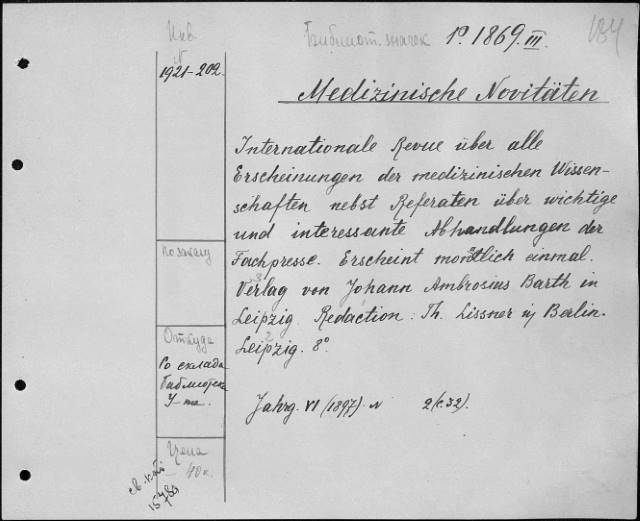 Инв
N
1921-202.
Библиот. значок 1º. 1869. III.
184
Medizinische Novitäten
Internationale Revue über alle
Erscheinungen der medizinischen Wissen-
schaften nebst Referaten über wichtige
und interessante Abhandlungen der
Fachpresse. Erscheint monatlich einmal.
Verlag von Johann Ambrosius Barth in
Leipzig. Redaction: Th. Lissner in Berlin.
Leipzig. 8º.
Jahrg. VI (1897). N 2 (c. 32).
По заказу
Откуда
Со склада
библиотек
У-та.
Цена
40к.
15789